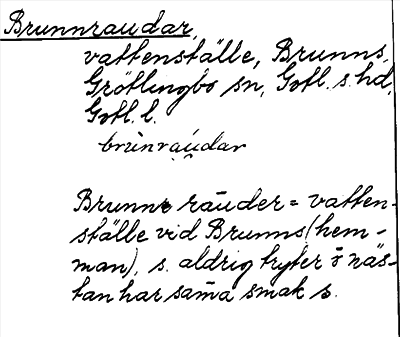 Brunnraudar,
vattenställe, Brunns,
Grötlingbo sn, Gotl. s. hd,
Gotl. l.
brùnraudar
Brunns räuder = vatten-
ställe vid Brunns (hem-
man), s. aldrig tryter o näs-
tan har sam̄a smak s.